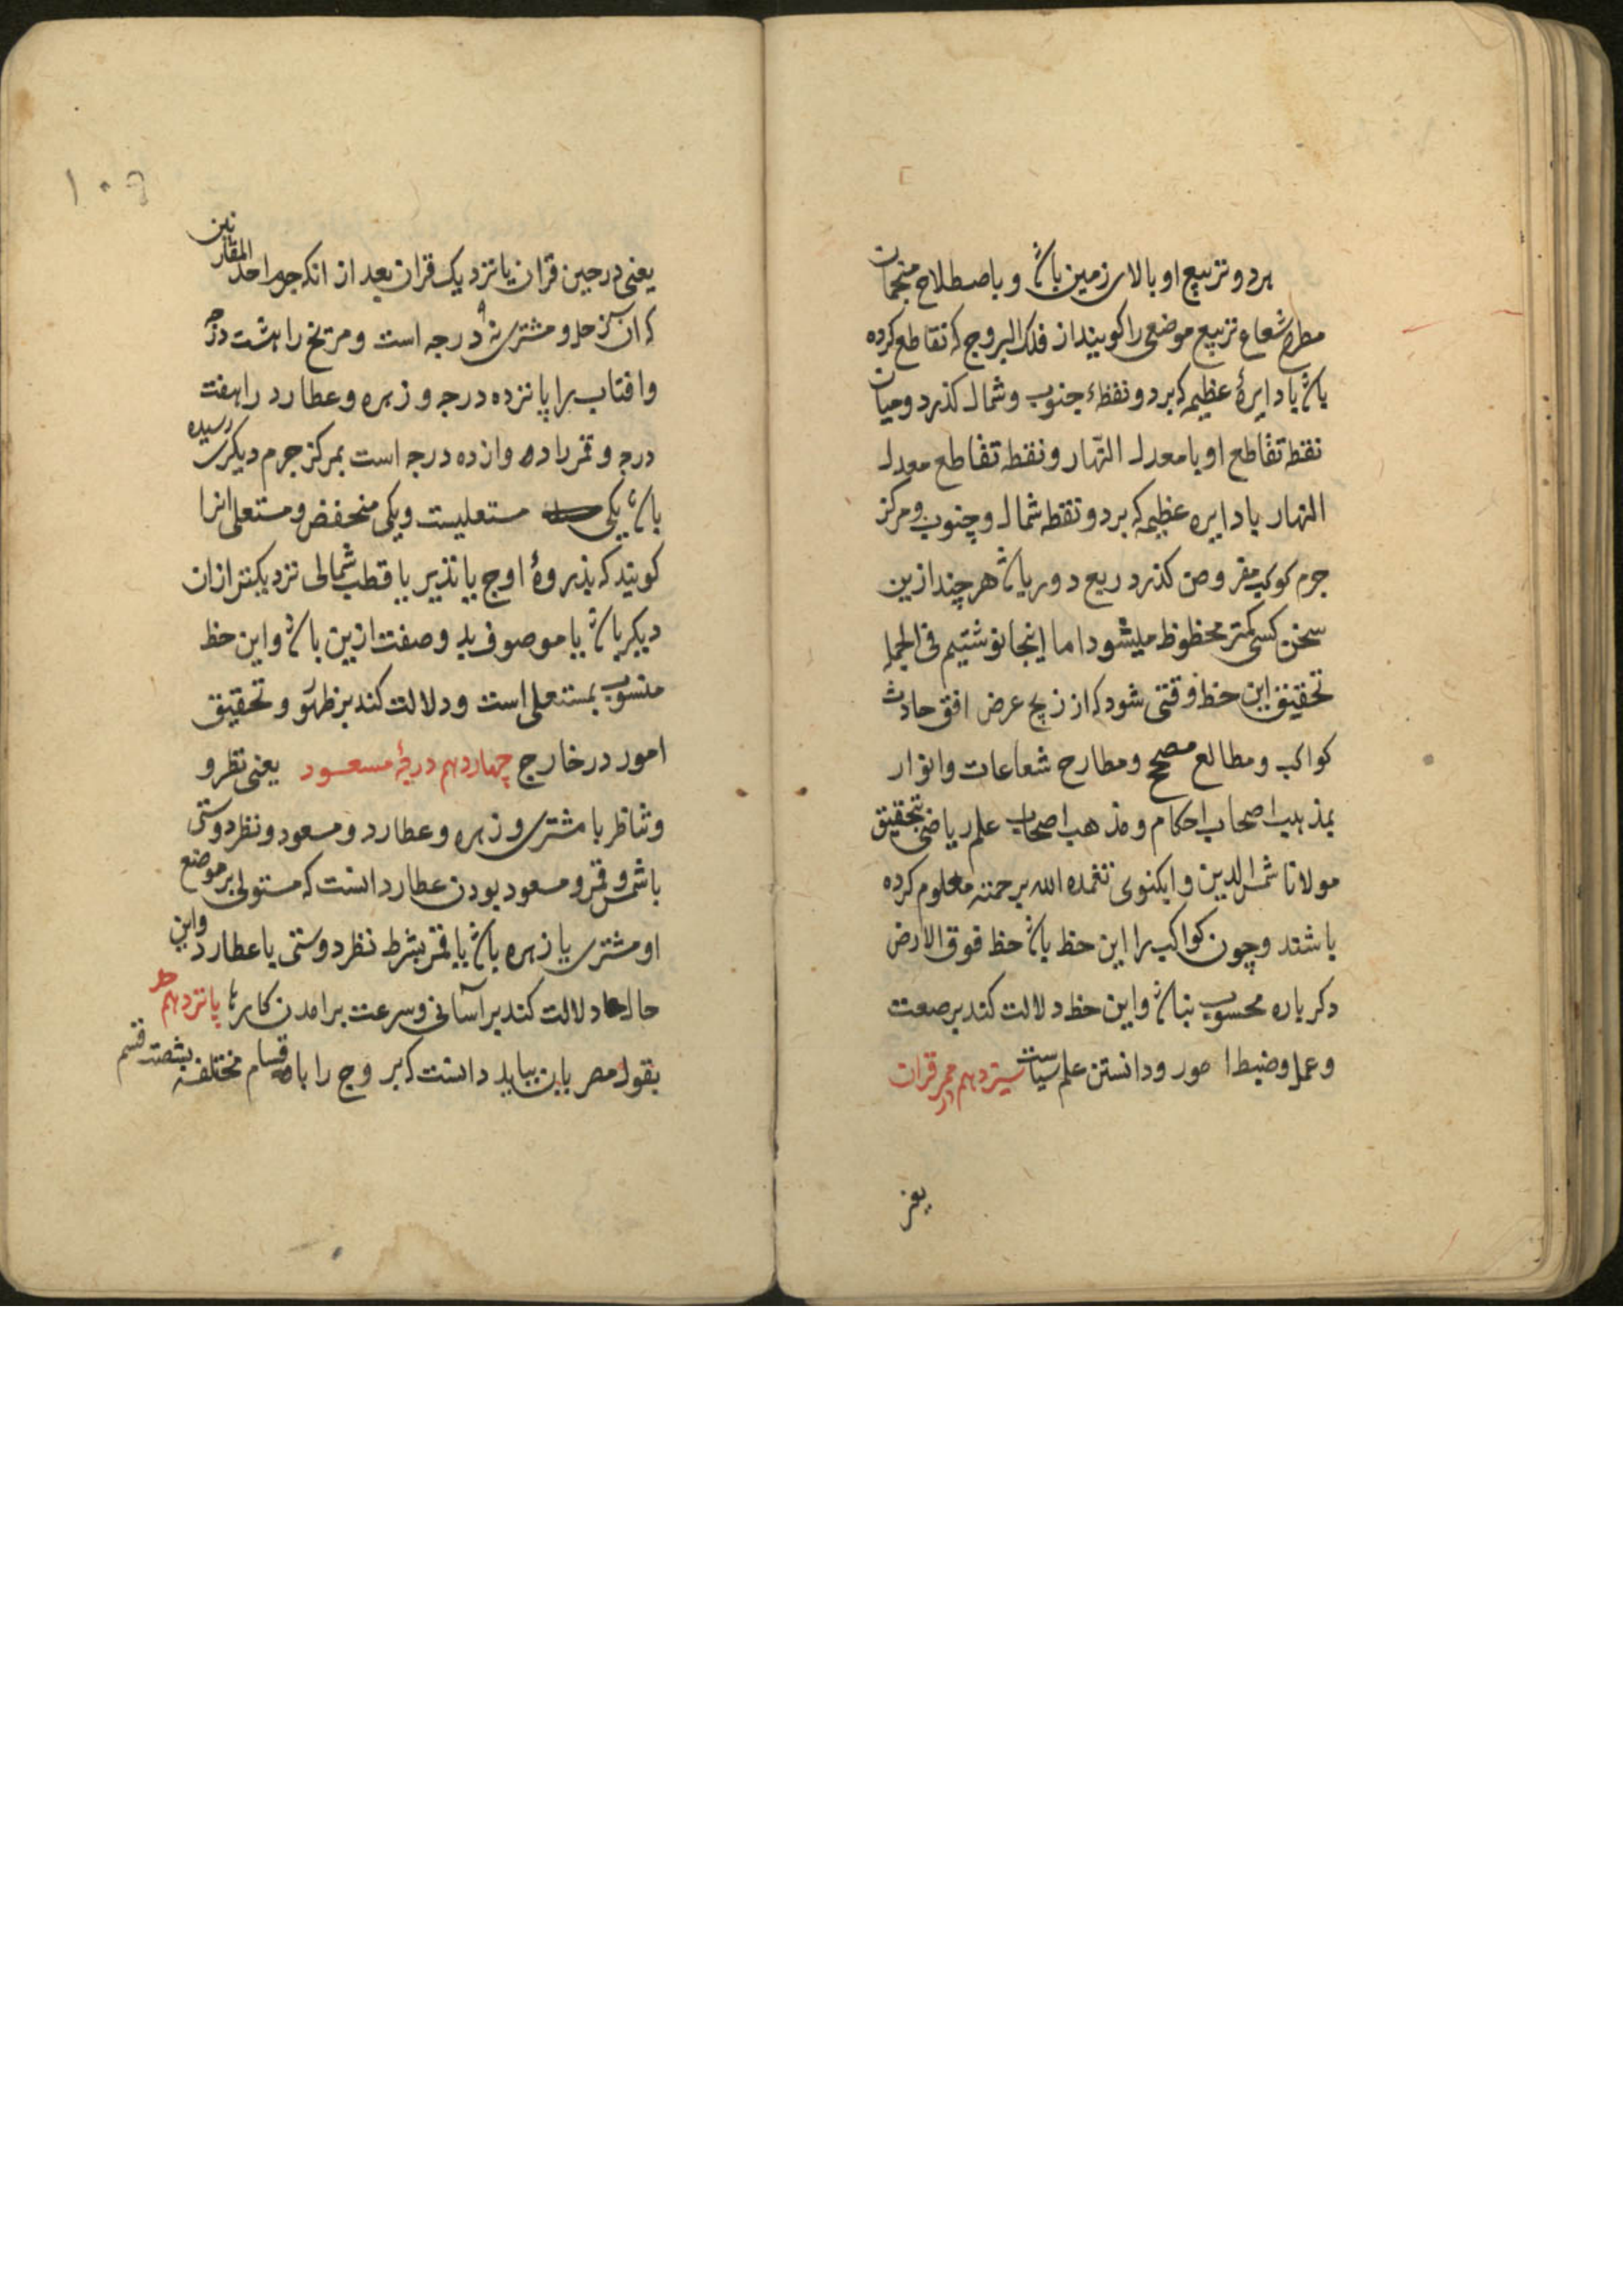 هر دو تربیع او بالای زمین باشد و باصطلاح منجمان
مطرح شعاع تربیع موضعی را کویند از فلک البروج که تقاطع کرده
باشد با دایرهٔ عظیمه که بر دو نقطهٔ جنوب و شمال کذرد و میان
نقطه تقاطع او با معدل النهار و نقطه تقاطع معدل
النهار با دایره عظیمه که بر دو نقطه شمال و جنوب و مرکز
جرم کوکب مفروض کذرد ربع دور باشد هر چند ازین
سخن کسی کمتر محظوظ میشود اما اینجا نوشتیم فی الجمله
تحقیق این حظ وقتی شود که از زیج عرض افق حادث
کواکب و مطالع مصحح و مطارح شعاعات و انوار
بمذهب اصحاب احکام و مذهب اصحاب علم ریاضی بتحقیق
مولانا شمس الدین وابکنوی تغمده الله برحمته معلوم کرده
باشند و چون کواکب را این حظ باشد حظ فوق الارض
دکر باره محسوب نباشد و این حظ دلالت کند بر صعت
و عمل و ضبط امور و دانستن علم سیاست سیزدهم ممر قرات
در
یعنی
۱۰۹
یعنی در حین قران یا نزدیک قران بعد از انکه جرم احد المقارنین
که ان زحل و مشتری نه درجه است و مریخ را هشت درجه
و افتاب را پانزده درجه و زهره و عطارد را هفت
درجه و قمر را دوازده درجه است بمرکز جرم دیکری رسیده
باشد یکی مستعلیست و یکی منخفض و مستعلی انرا
کویند که بذروهٔ اوج یا تدویر یا قطب شمالی نزدیکتر از ان
دیکر باشد یا موصوف بدو صفت ازین باشد و این حظ
منسوب بمستعلی است و دلالت کند بر ظهور و تحقیق
امور در خارج چهاردهم درجهٔ مسعود یعنی نظر و
و تناظر با مشتری و زهره و عطارد و مسعود و نظر دوستی
با شمس و قمر و مسعود بودن عطارد انست که مستولی بر موضع
او مشتری یا زهره باشد یا قمر بشرط نظر دوستی با عطارد و این
حالها دلالت کند بر آسانی و سرعت برامدن کارها پانزدهم حد
بقول مصریان بباید دانست که بروج را باقسام مختلفه بشصت قسم